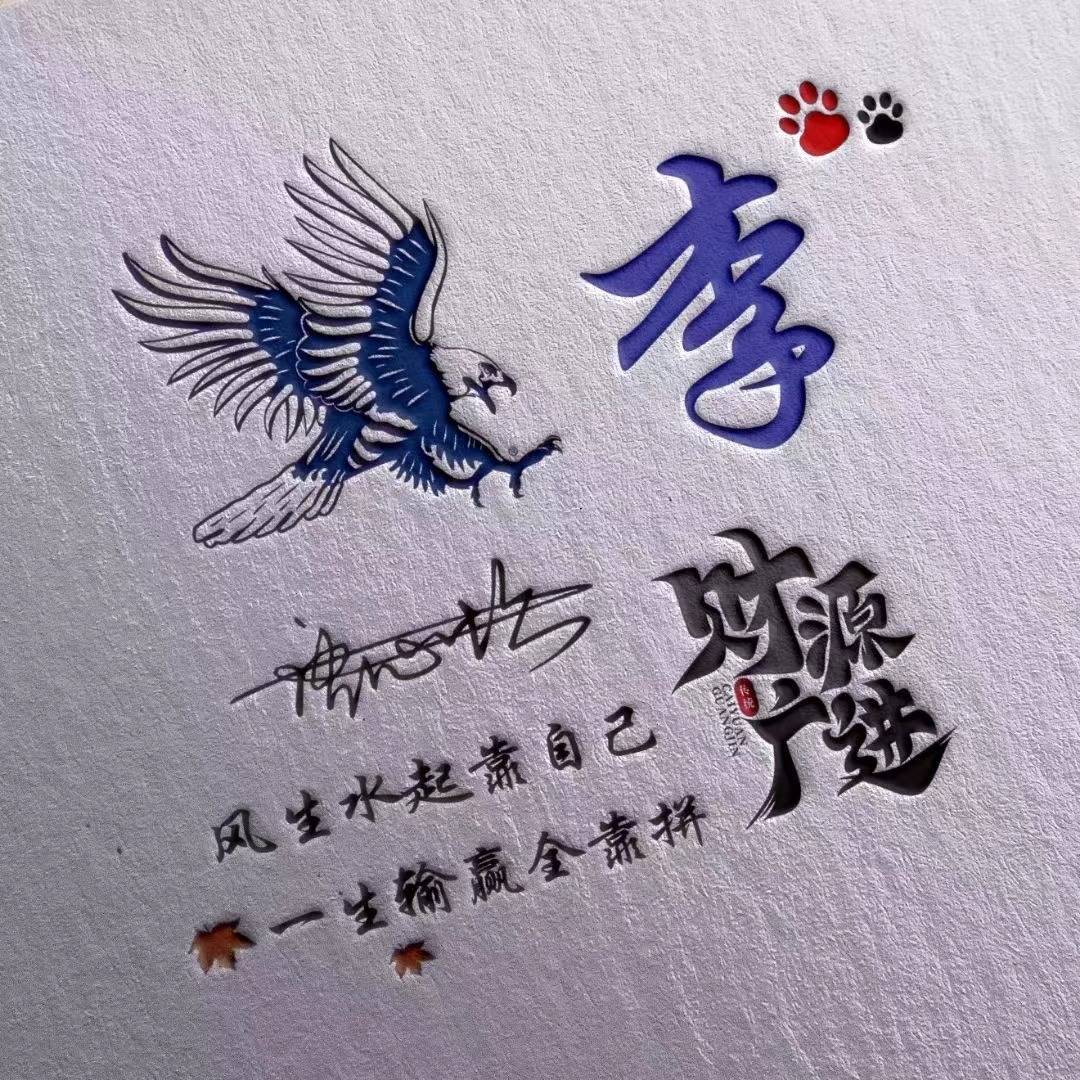 李
财源
广进
CAIYUAN
GUANGJIN
风生水起靠自己
一生输赢全靠拼